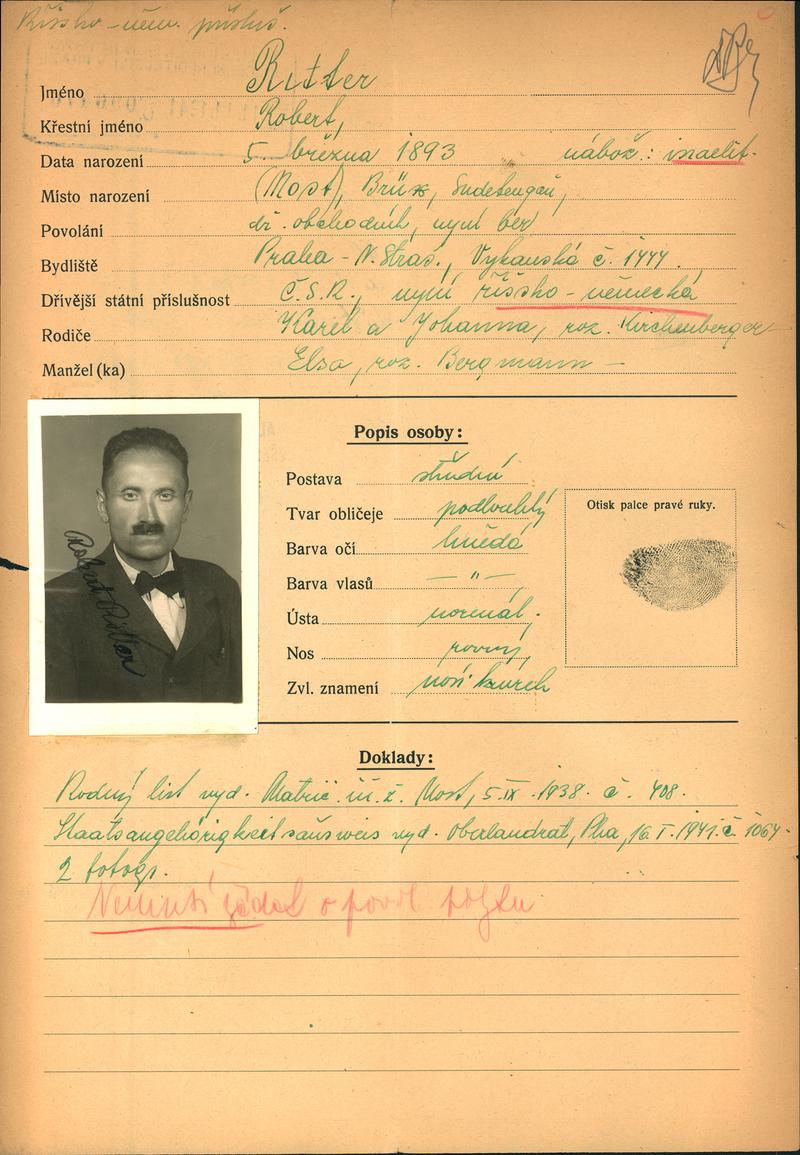 Říšsko-něm. přísluš.
Jméno Ritter
Křestní jméno Robert,
Data narození 5. března 1893 nábož.: israelit.
Místo narození (Most), Brüx, Sudetengau,
Povolání dř. obchodník, nyní bez
Bydliště Praha - N. Straš., Vykanská č. 1444.
Dřívější státní příslušnost Č.S.R., nyní říšsko-německá
Rodiče Karel a Johanna, roz. Kirchenberger
Manžel (ka) Elsa, roz. Bergmann —
Popis osoby:
Postava střední
Tvar obličeje podlouhlý
Otisk palce pravé ruky.
Barva očí hnědá
Barva vlasů — " —
Ústa normál.
Nos rovný,
Zvl. znamení nosí knírek
Robert Ritter
Doklady:
Rodný list vyd. Matrič. ú. ž. Most, 5.IX.1938. č. 408.
Staatsangehörigkeitsausweis vyd. Oberlandrat, Pha, 16.I.1941.č. 1064.
2 fotogr.
Nemusí žádat o povol. pobytu